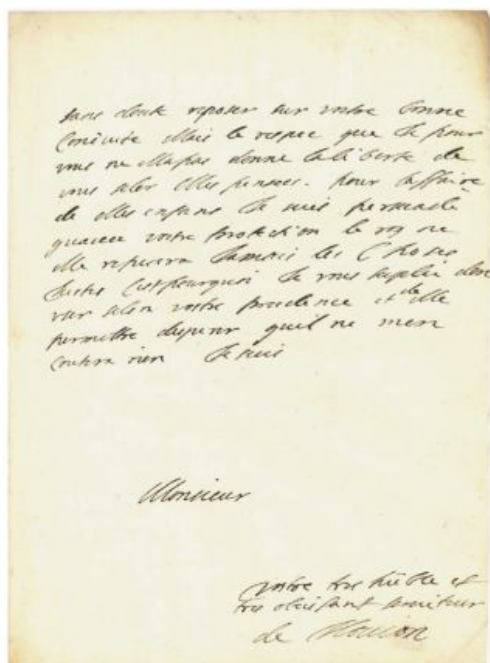 sans doute reposer sur vostre bonne
Conduite Mais le respec que Je pour
vous ne Ma pas donne la liberte de
vous Mes pensees. pour laffaire
de Mes enfans Je suis persuadé
quavec vostre protection le roy ne
Me refusera Jamais les Choses
Justes C'est pourquoi Je vous suplie
selon vostre prudence et de Me
permettre desperer quil ne men
Coutera rien Je suis
Monsieur
vostre tres hũble et
tres obeissant serviteur
de